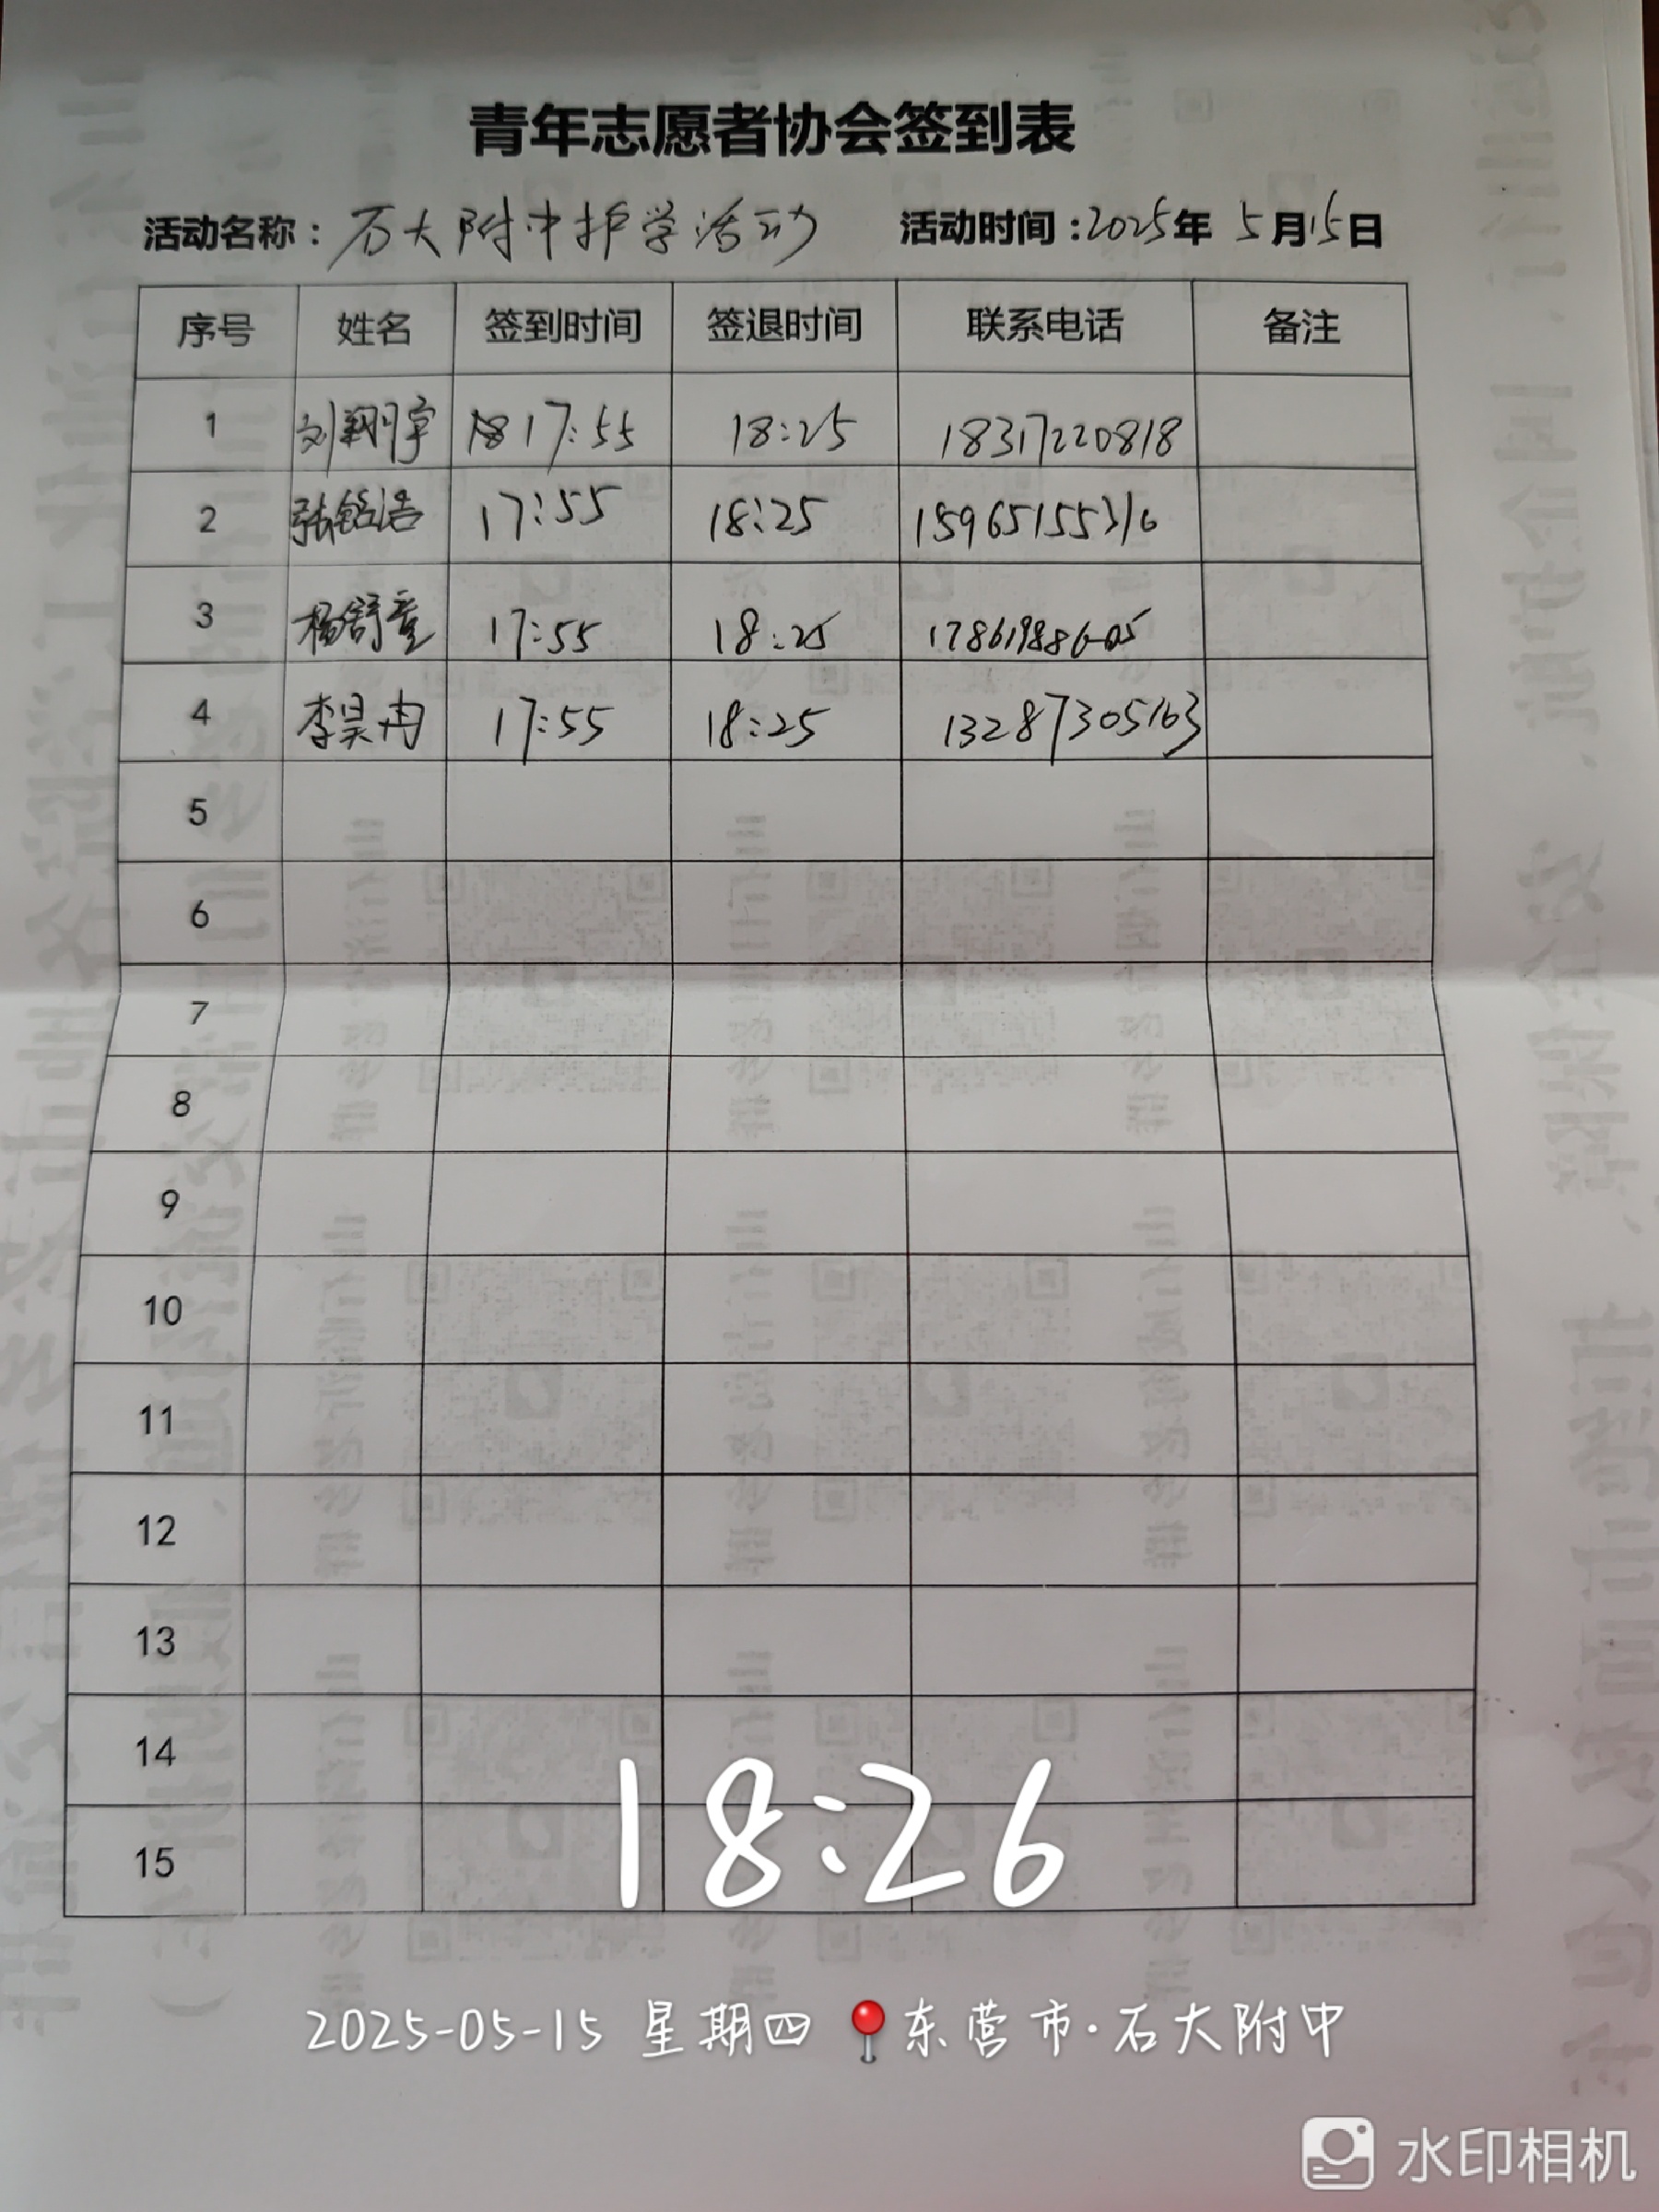 青年志愿者协会签到表
活动名称：石大附中护学活动 活动时间：2025年 5月15日
序号 姓名 签到时间 签退时间 联系电话 备注
1 刘翔宇 17:55 18:25 18317220818
2 张铭浩 17:55 18:25 15965155316
3 杨舒童 17:55 18:25 17861988605
4 李昊冉 17:55 18:25 13287305163
5
6
7
8
9
10
11
12
13
14
15
18:26
2025-05-15 星期四 东营市·石大附中
水印相机